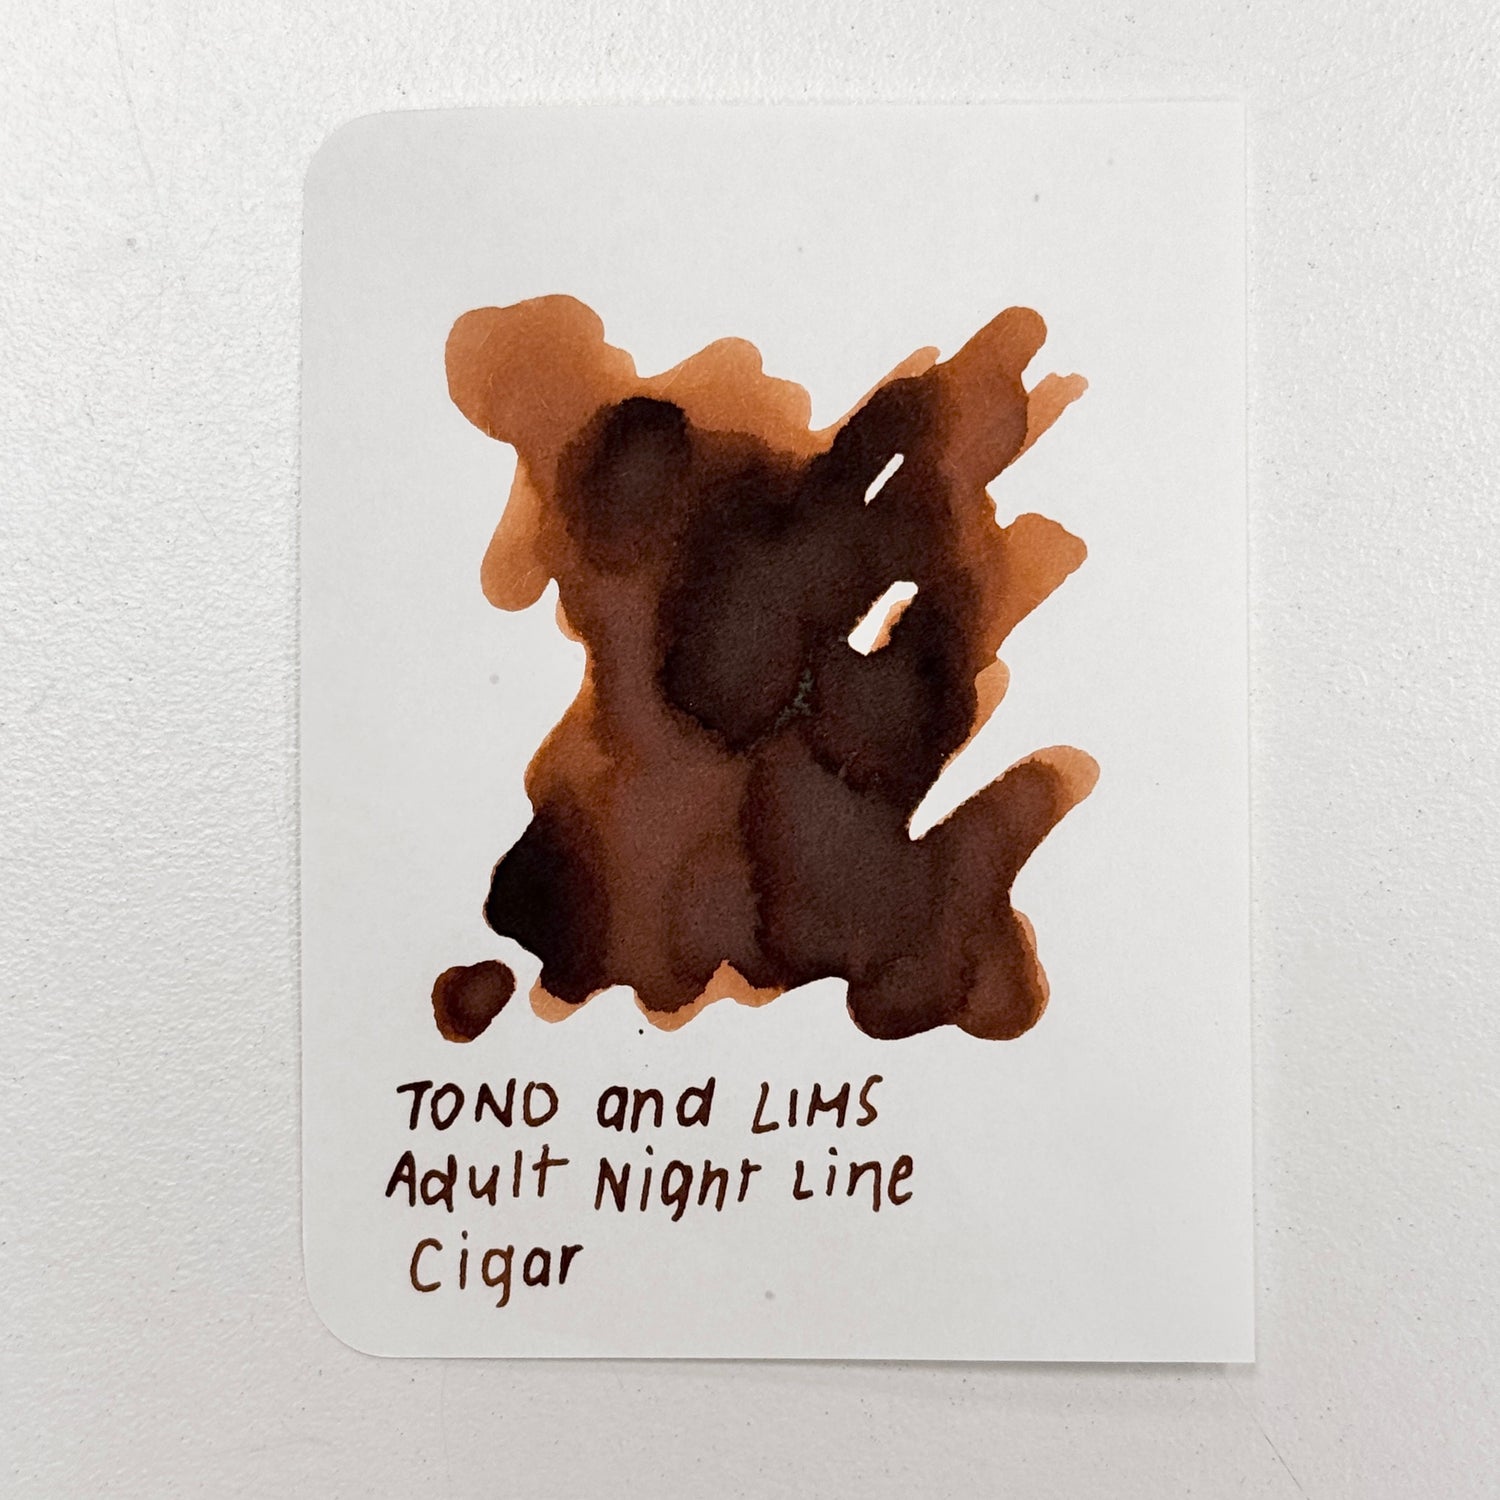 TONO and LIMS
Adult Night Line
Cigar